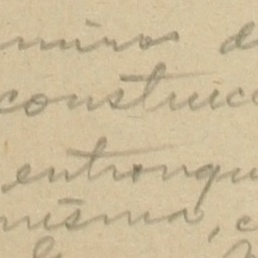 miros d
construcc
entronqu
misma, c